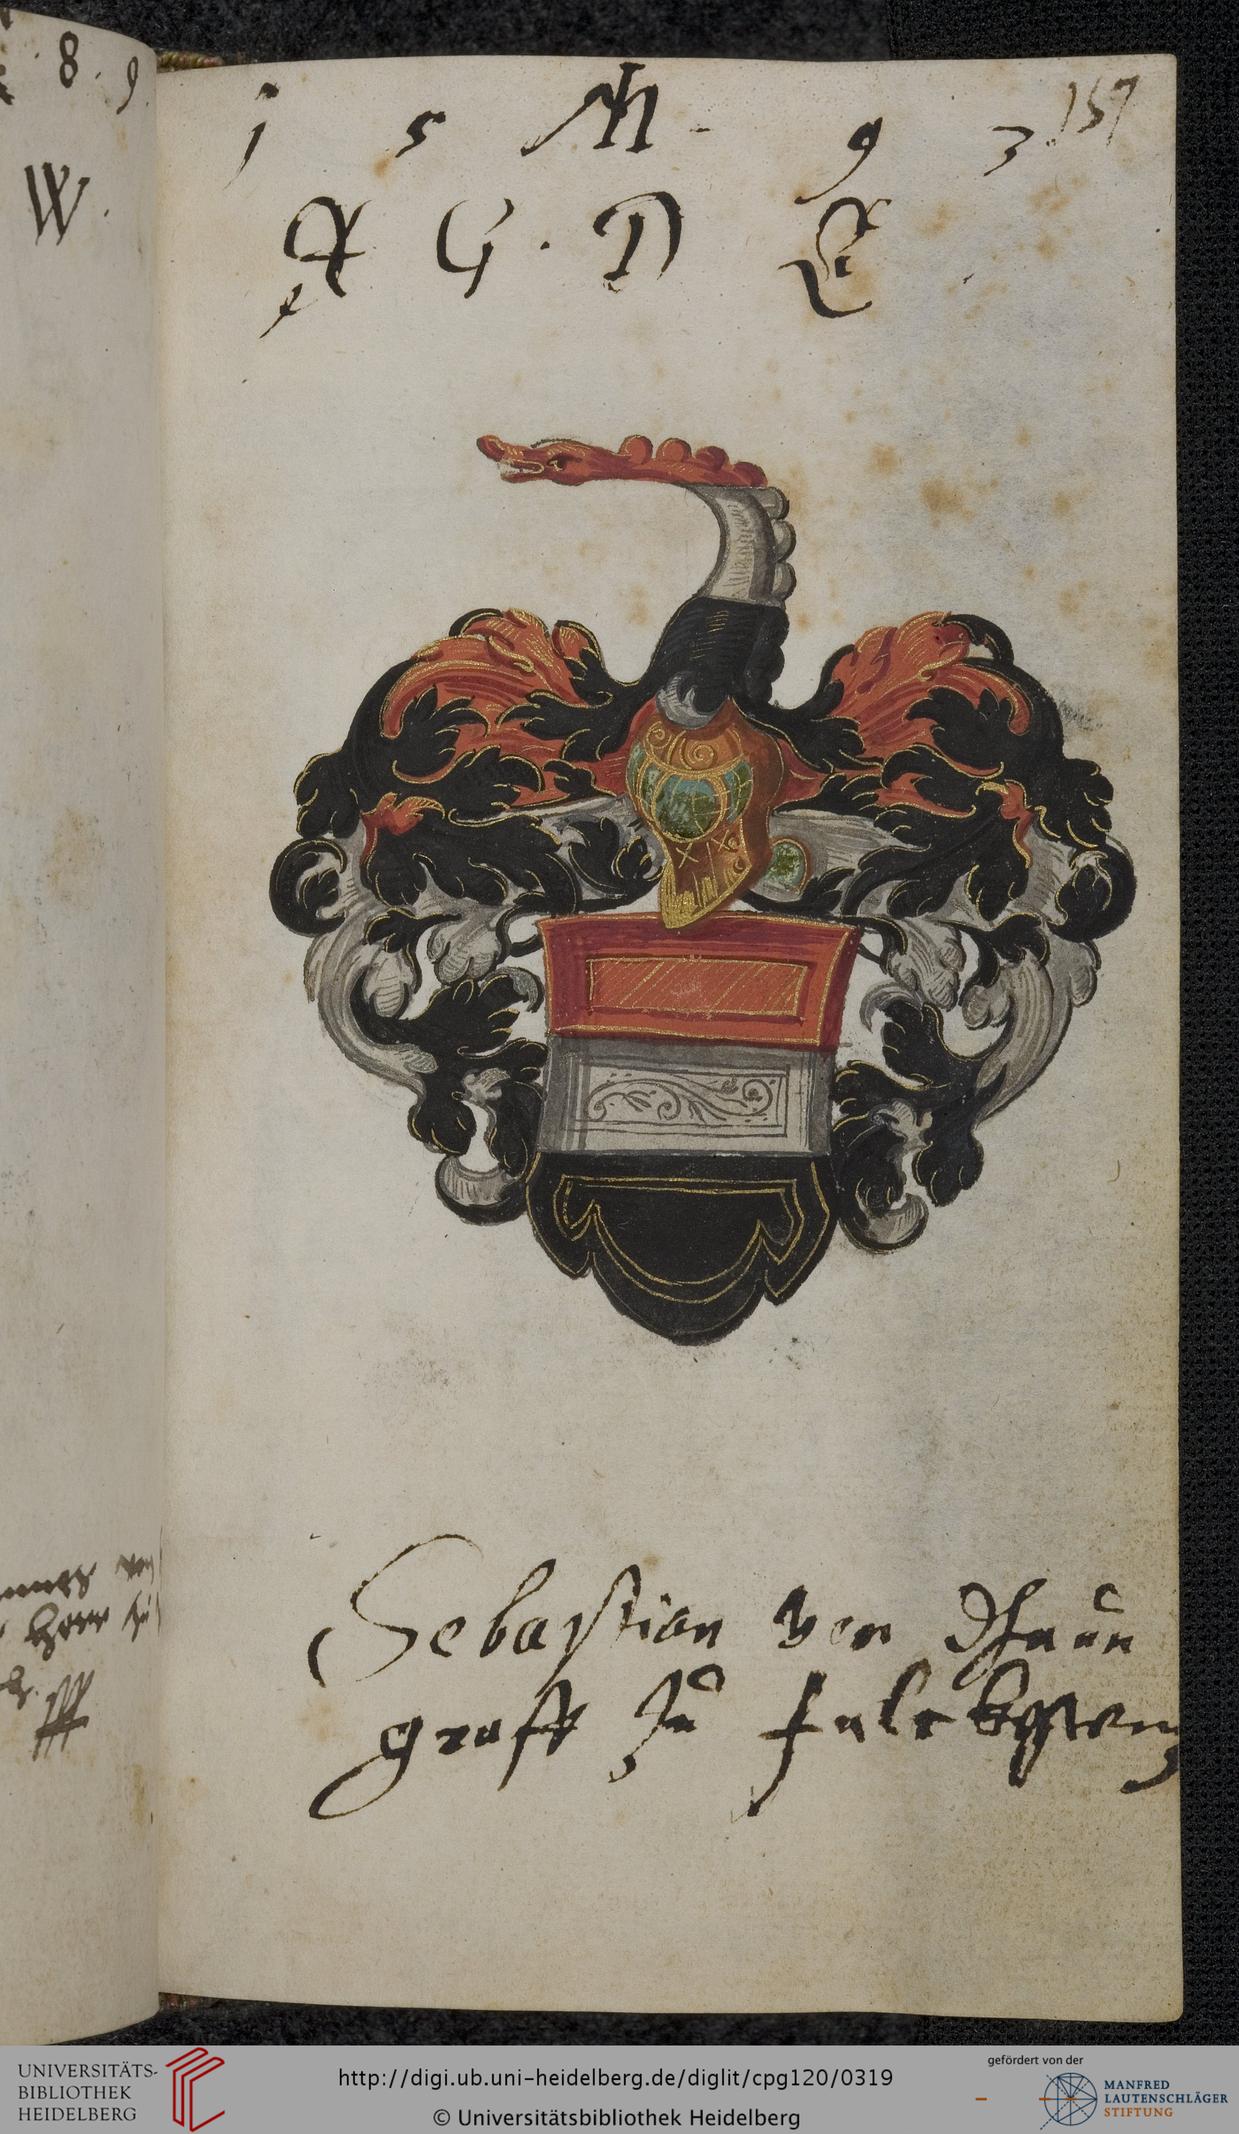 8 . 9 .
W .
1 5 M 9 3 .
157
A G . D E
Sebastian von Dhaun
graff Zu falckhsten
Herr Zu
UNIVERSITÄTS-
BIBLIOTHEK
HEIDELBERG
http://digi.ub.uni-heidelberg.de/diglit/cpg120/0319
© Universitätsbibliothek Heidelberg
gefördert von der
MANFRED
LAUTENSCHLÄGER
STIFTUNG